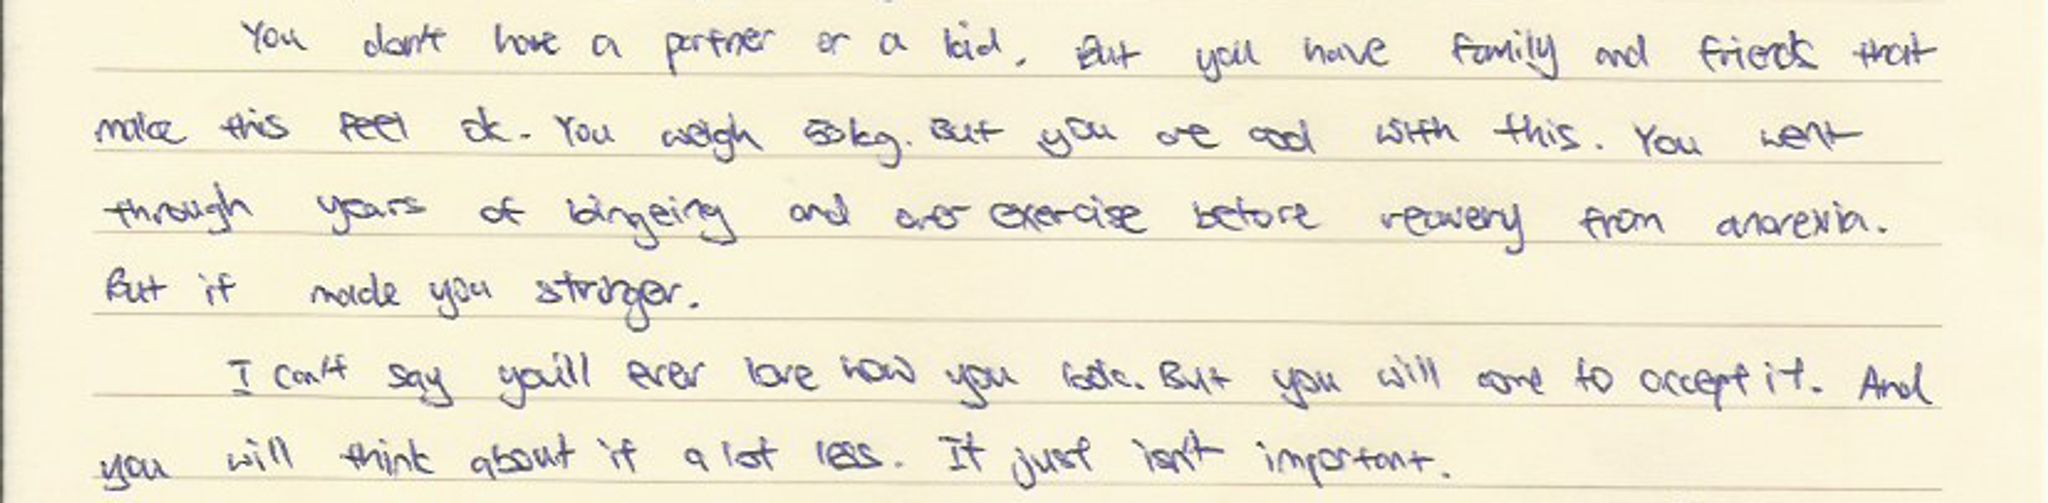 You don't have a partner or a kid. But you have family and friends that
make this feel ok. You weigh 50kg. But you are cool with this. You went
through years of bingeing and over exercise before recovery from anorexia.
But it made you stronger.
I can't say you'll ever love how you look. But you will come to accept it. And
you will think about it a lot less. It just isn't important.